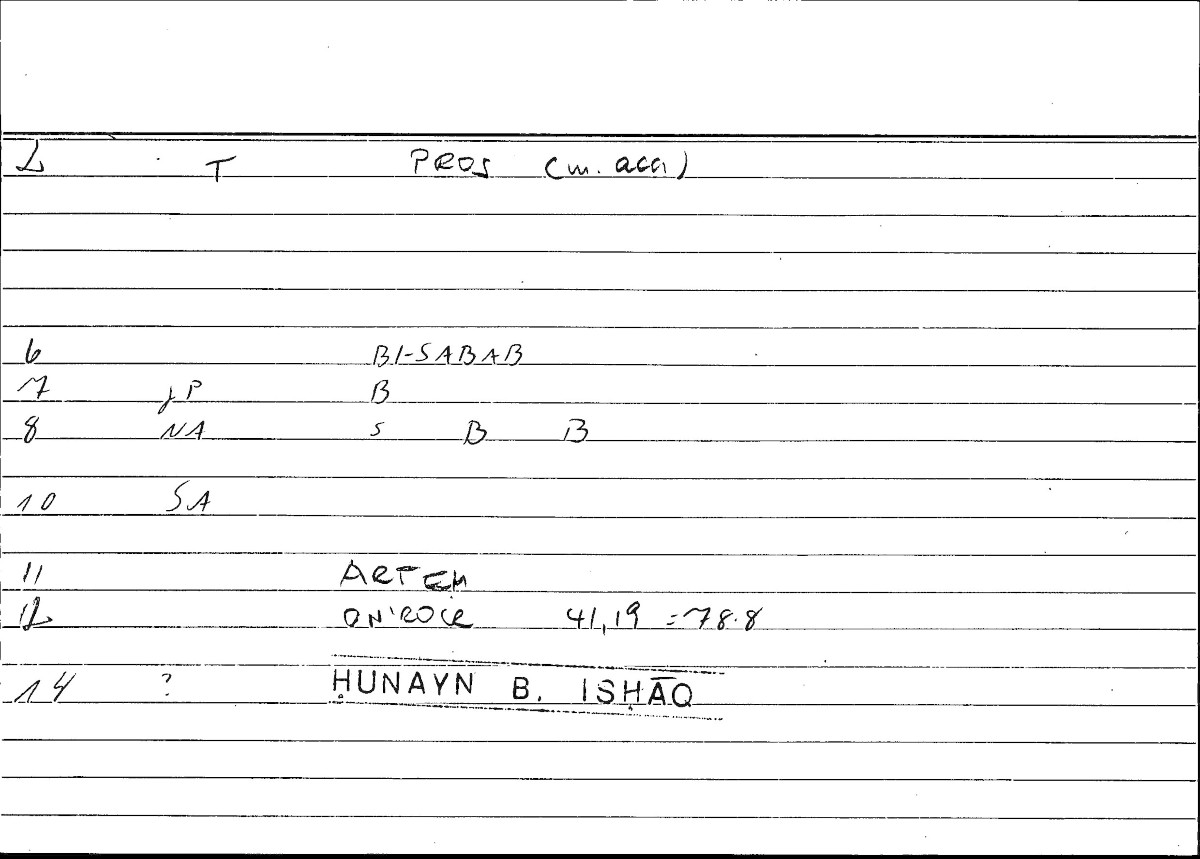 L T PROS (m. acc)
6 BI-SABAB
7 JP B
8 NA S B B
10 SA
11 ARTEM
12 ONIROCR 41,19 = 78.8
14 ? ḤUNAYN B. ISḤĀQ